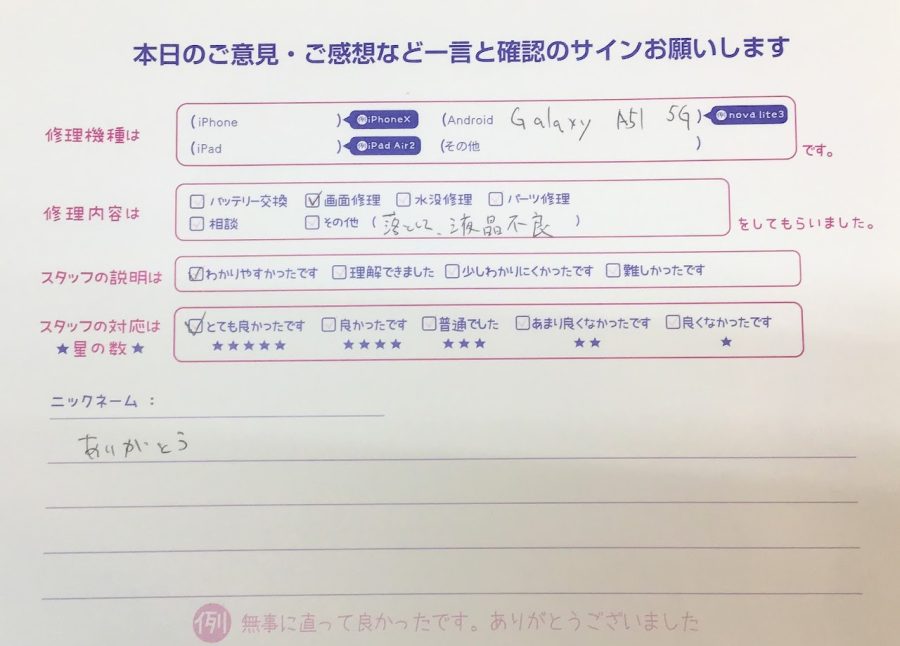 本日のご意見・ご感想など一言と確認のサインお願いします
修理機種は
(iPhone ) 例iPhoneX (Android Galaxy A51 5G) 例nova lite3
(iPad ) 例iPad Air2 (その他 ) です。
修理内容は
☐バッテリー交換 ☑画面修理 ☐水没修理 ☐パーツ修理
☐相談 ☐その他 (落として、液晶不良) をしてもらいました。
スタッフの説明は ☑わかりやすかったです ☐理解できました ☐少しわかりにくかったです ☐難しかったです
スタッフの対応は ☑とても良かったです ☐良かったです ☐普通でした ☐あまり良くなかったです ☐良くなかったです
★星の数★ ★★★★★ ★★★★ ★★★ ★★ ★
ニックネーム：
ありがとう
例 無事に直って良かったです。ありがとうございました